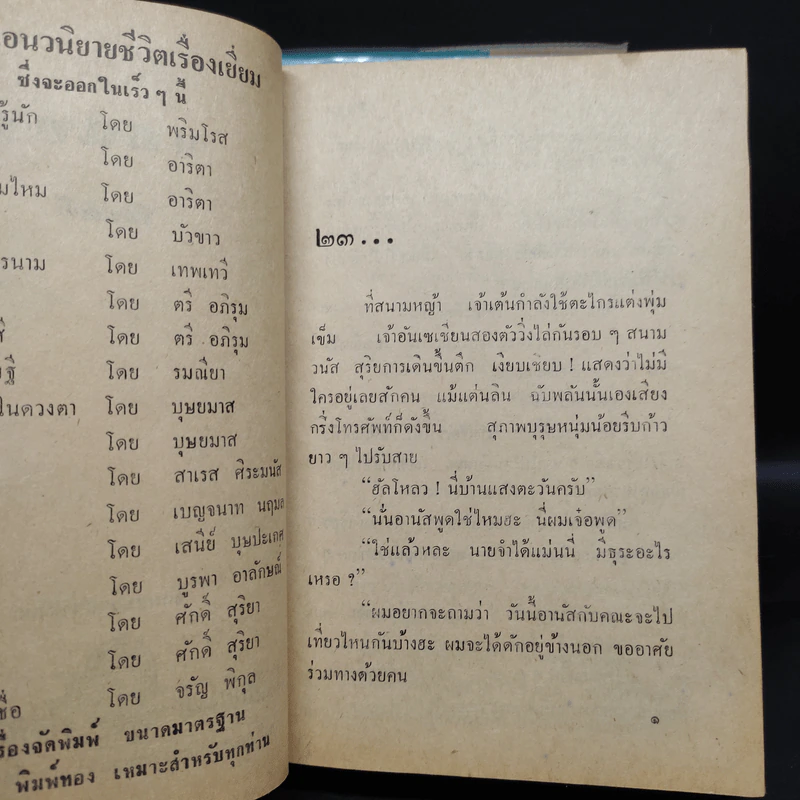 อนวนิยายชีวิตเรื่องเยี่ยม
ซึ่งจะออกในเร็ว ๆ นี้
รู้นัก โดย พริมโรส
โดย อาริตา
มไหม โดย อาริตา
โดย บัวขาว
รนาม โดย เทพเทวี
โดย ตรี อภิรุม
โดย ตรี อภิรุม
ฐี โดย รมณียา
ในดวงตา โดย บุษยมาส
โดย บุษยมาส
โดย สาเรส ศิระมนัส
โดย เบญจนาท นฤมล
โดย เสนีย์ บุษปะเกศ
โดย บูรพา อาลักษณ์
โดย ศักดิ์ สุริยา
โดย ศักดิ์ สุริยา
ชื่อ โดย จรัญ พิกุล
รื่องจัดพิมพ์ ขนาดมาตรฐาน
พิมพ์ทอง เหมาะสำหรับทุกท่าน
๒๓...
ที่สนามหญ้า เจ้าเต้นกำลังใช้ตะไกรแต่งพุ่ม
เข็ม เจ้าอันเซเชียนสองตัววิ่งไล่กันรอบ ๆ สนาม
วนัส สุริยการเดินขึ้นตึก เงียบเชียบ ! แสดงว่าไม่มี
ใครอยู่เลยสักคน แม้แต่นลิน ฉับพลันนั้นเองเสียง
กริ่งโทรศัพท์ก็ดังขึ้น สุภาพบุรุษหนุ่มน้อยรีบก้าว
ยาว ๆ ไปรับสาย
“ฮัลโหลว ! นี่บ้านแสงตะวันครับ”
“นั่นอานัสพูดใช่ไหมฮะ นี่ผมเจ๋อพูด”
“ใช่แล้วหละ นายจำได้แม่นนี่ มีธุระอะไร
เหรอ ?”
“ผมอยากจะถามว่า วันนี้อานัสกับคณะจะไป
เที่ยวไหนกันบ้างฮะ ผมจะได้ดักอยู่ข้างนอก ขออาศัย
ร่วมทางด้วยคน
๑